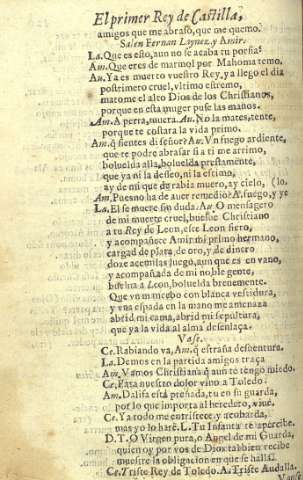 El primer Rey de Castilla,
amigos que me abraso, que me quemo.
Salen Fernan Laynez, y Amir.
La. Que es esto, aun no se acaba tu porfia?
Am. Que eres de marmol por Mahoma temo.
Au. Ya es muerto vuestro Rey, ya llegó el dia
postrimero cruel, vltimo estremo,
matome el alto Dios de los Christianos,
porque en esta muger puse las manos.
Am. A perra, muera. Au. No la mates, tente,
porque te costara la vida primo.
Am. q̃ sientes di señor? Au. Vn fuego ardiente,
que te podre abrasar si a ti me arrimo,
boluelda alla, boluelda prestamente,
que ya ni la desseo, ni la estimo,
ay de mi que de rabia muero, ay cielo, (lo.
Am. Pues no ha de auer remedio? A. fuego, y ye
La. El se muere sin duda. Au. O mensagero
de mi muerte cruel, buelue Christiano
a tu Rey de Leon, esse Leon fiero,
y acompañete Amir mi primo hermano,
cargad de plata, de oro, y de dinero
doze acemilas luego, aun que es en vano,
y acompañada de mi noble gente,
buelua a Leon, boluelda breuemente.
Que vn mancebo con blanca vestidura,
y vna espada en la mano me amenaza
abrid mi cama, abrid mi sepultura,
que ya la vida al alma desenlaça.
Vase.
Ce. Rabiando va, Am. q̃ estraña desuentura.
La. Demos en la partida amigos traça
Am. Vamos Christiana q̃ aun te tengo miedo.
Ce. Passa nuestro dolor vino a Toledo.
Am. Dalifa està preñada, tu su guarda,
por lo que importa al heredero, vino.
Ce. Ya todo me entristece, y acobarda,
mas yo lo harè. L. Tu Infanta te apercibe.
D. T. O Virgen pura, o Angel de mi Guarda,
quien og por vos de Dios tambien recibe
muestre la obligacion en que se halla.
Ce. Triste Rey de Toledo. A. Triste Audalla.